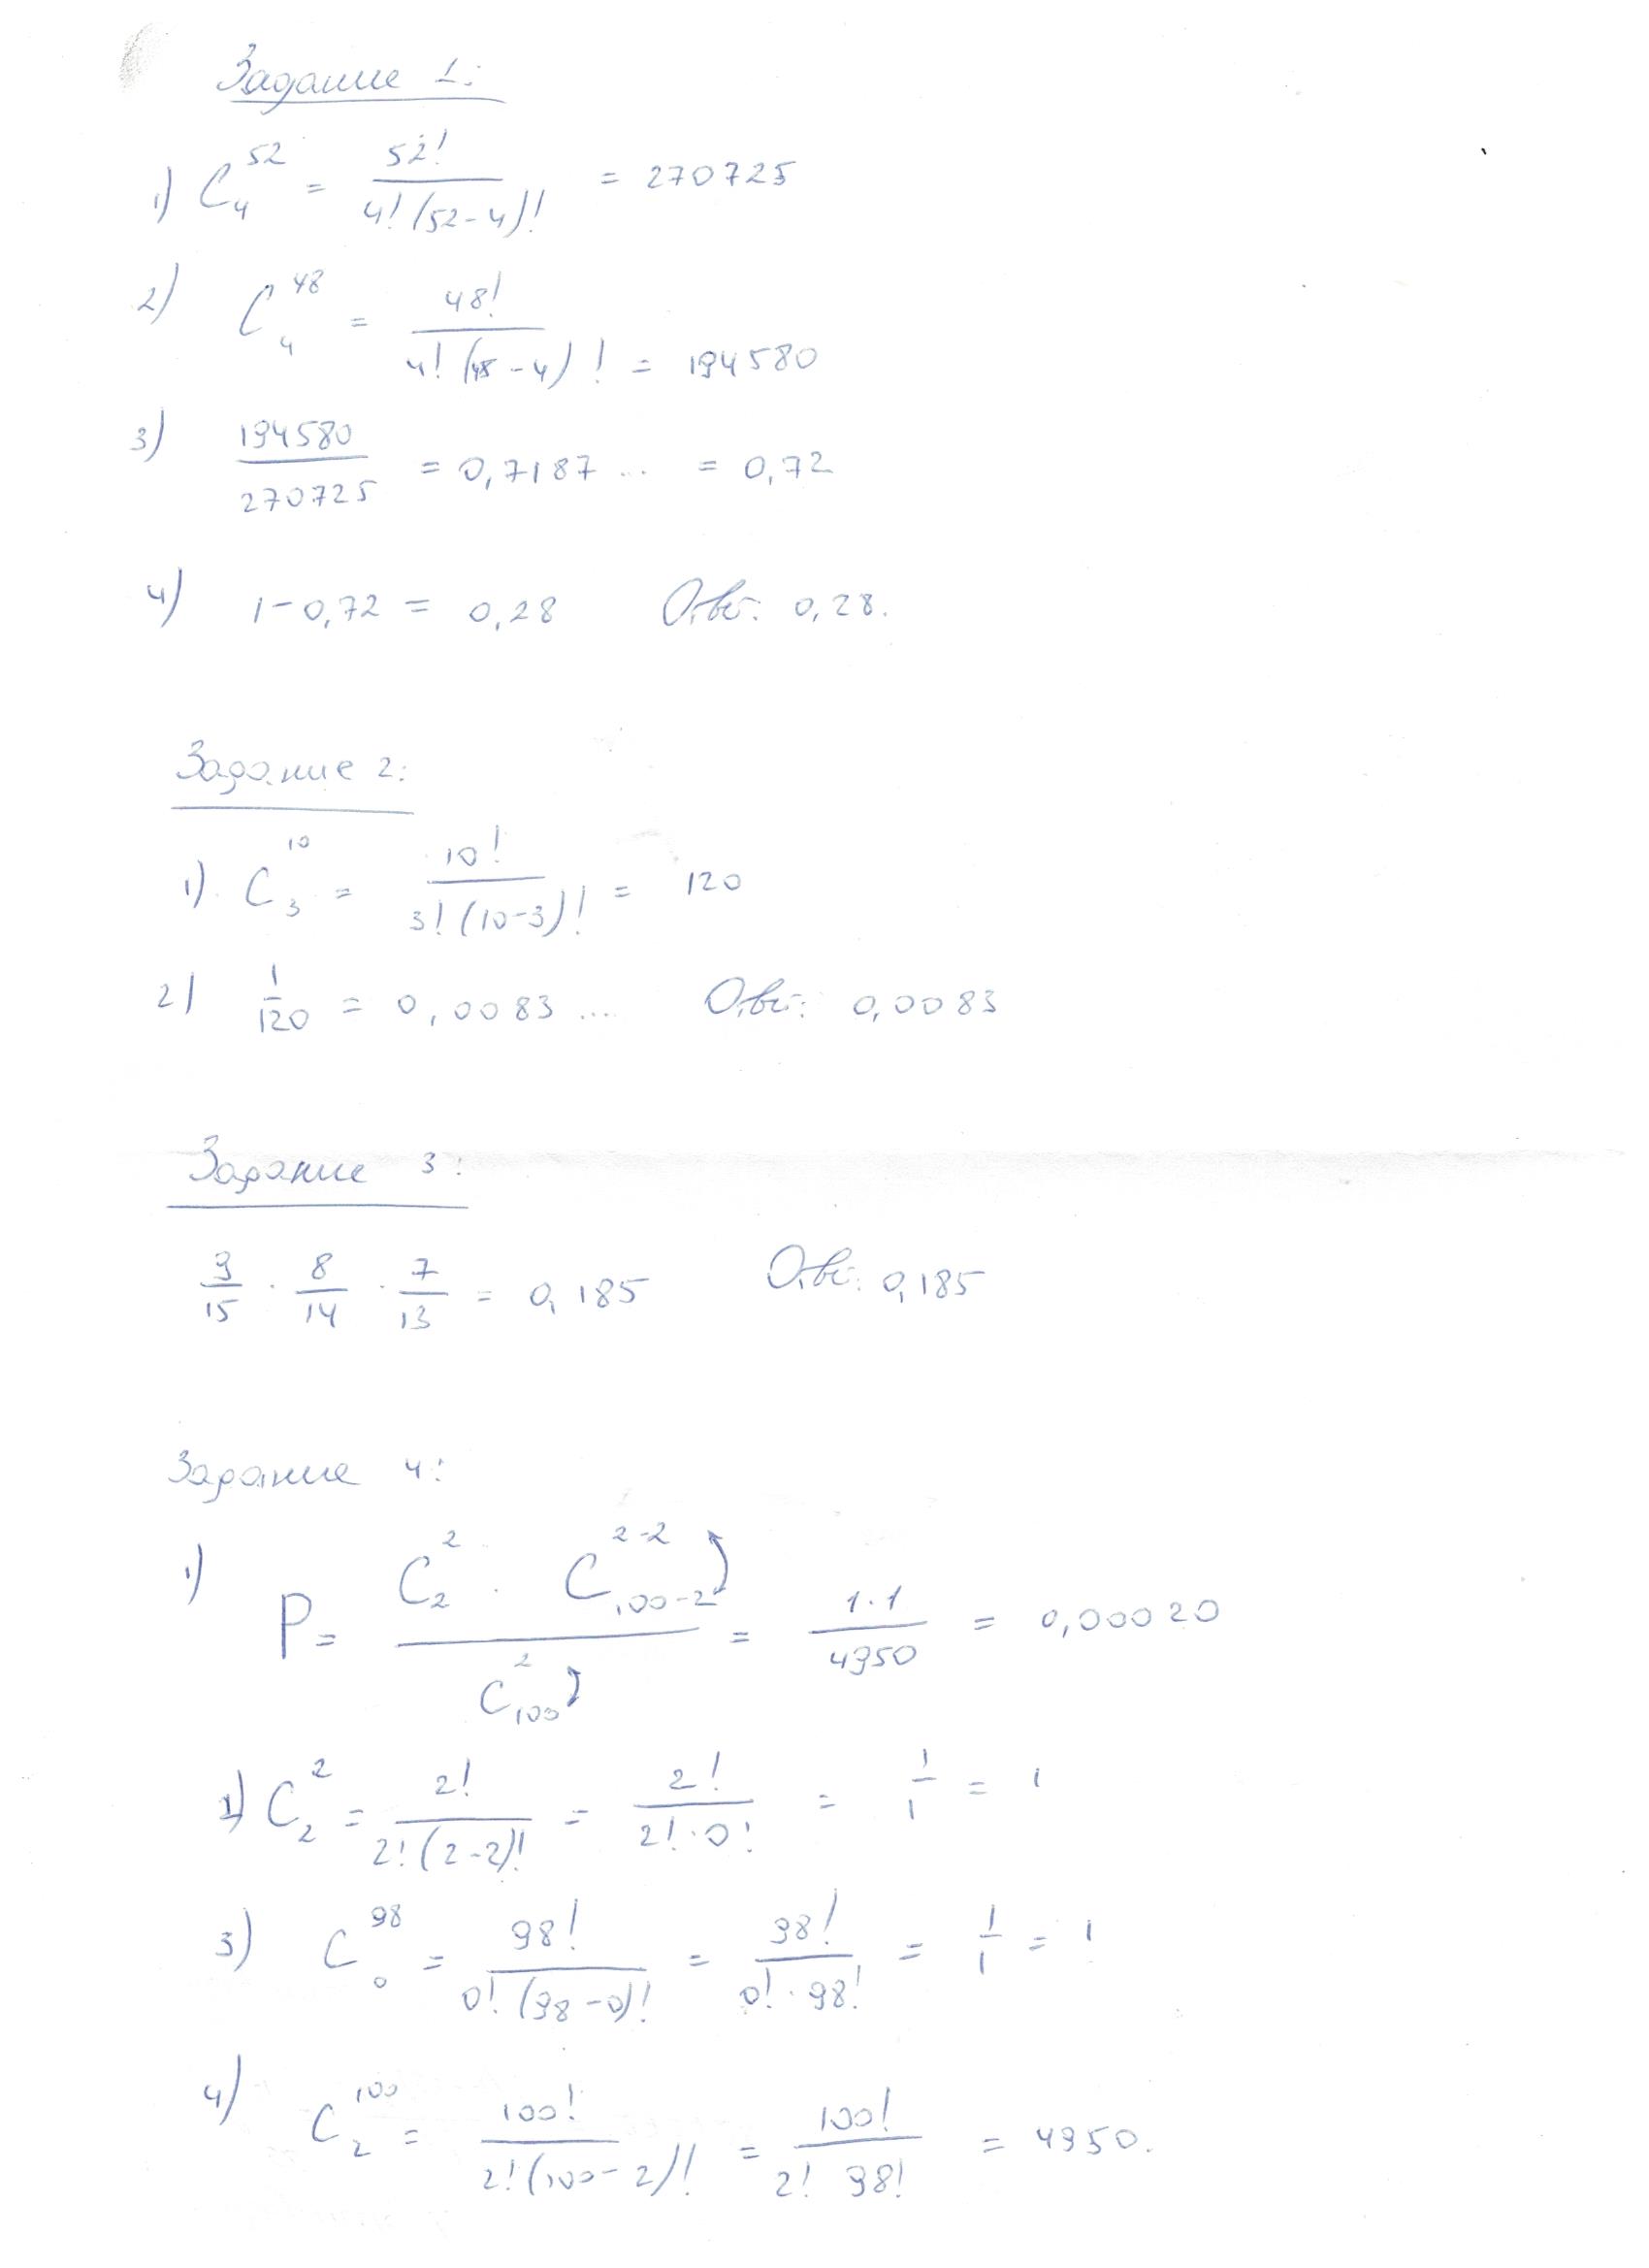 Задание 1:
1) C_4^52 = 52! / 4!(52-4)! = 270725
2) C_4^48 = 48! / 4!(48-4)! = 194580
3) 194580 / 270725 = 0,7187... = 0,72
4) 1-0,72 = 0,28 Отв: 0,28.
Задание 2:
1). C_3^10 = 10! / 3!(10-3)! = 120
2) 1/120 = 0,0083.... Отв: 0,0083
Задание 3:
9/15 · 8/14 · 7/13 = 0,185 Отв: 0,185
Задание 4:
1) P = C_2^2 · C_100-2^2-2 / C_100^2 = 1·1 / 4950 = 0,00020
2) C_2^2 = 2! / 2!(2-2)! = 2! / 2!·0! = 1/1 = 1
3) C_0^98 = 98! / 0!(98-0)! = 98! / 0!·98! = 1/1 = 1
4) C_2^100 = 100! / 2!(100-2)! = 100! / 2! 98! = 4950.